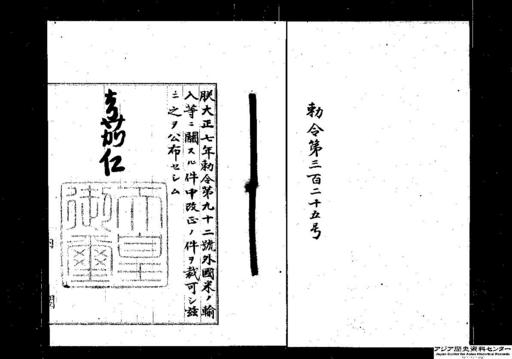 勅令第三百二十五号
朕大正七年勅令第九十二號外國米ノ輸
入等ニ關スル件中改正ノ件ヲ裁可シ茲
ニ之ヲ公布セシム
嘉仁
天皇
御璽
閣
アジア歴史資料センター
Japan Center for Asian Historical Records